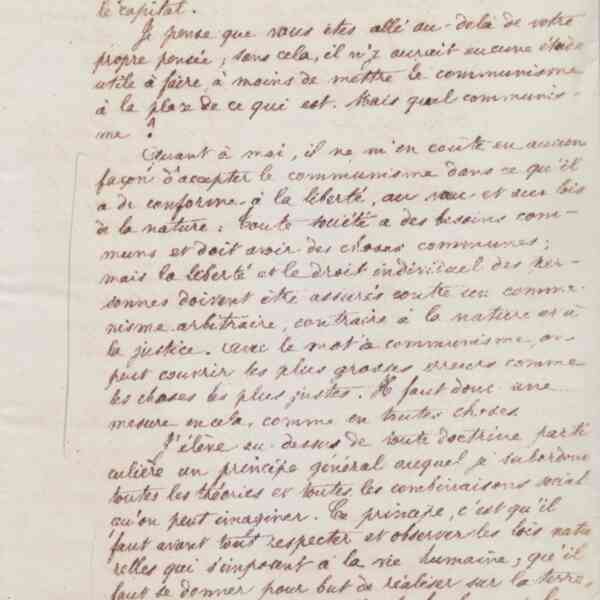 le capital.
Je pense que vous êtes allé au-delà de votre
propre pensée; sans cela, il n'y aurait aucune étude
utile à faire, à moins de mettre le communisme
à la place de ce qui est. Mais quel communis-
me ?
Quant à moi, il ne m'en coûte en aucune
façon d'accepter le communisme dans ce qu'il
a de conforme à la liberté, au et aux lois
de la nature: toute société a des besoins com-
muns et doit avoir des choses communes;
mais la liberté et le droit individuel des per-
sonnes doivent être assurés contre un commu-
nisme arbitraire, contraire à la nature et à
la justice. Avec le mot communisme, on
peut couvrir les plus grosses erreurs comme
les choses les plus justes. Il faut donc une
mesure en cela, comme en toutes choses
J'élève au-dessus de toute doctrine parti
culière un principe général auquel je subordonne
toutes les théories et toutes les combinaisons social
qu'on peut imaginer. Ce principe, c'est qu'il
faut avant tout respecter et observer les lois natu
relles qui s'imposent à la vie humaine; qu'il
faut se donner pour but de réaliser sur la terre,